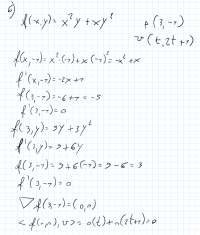 б)
f(x,y) = x²y + xy²
p(3,-1)
v(t,2t+1)
f(x,-1) = x²·(-1) + x(-1)² = -x² + x
f'(x,-1) = -2x+1
f'(3,-1) = -6+1 = -5
f'(3,-1) = 0
f(3,y) = 9y + 3y²
f'(3,y) = 9+6y
f(3,-1) = 9+6(-1) = 9-6 = 3
f'(3,-1) = 0
▽f(3,-1) = (0,0)